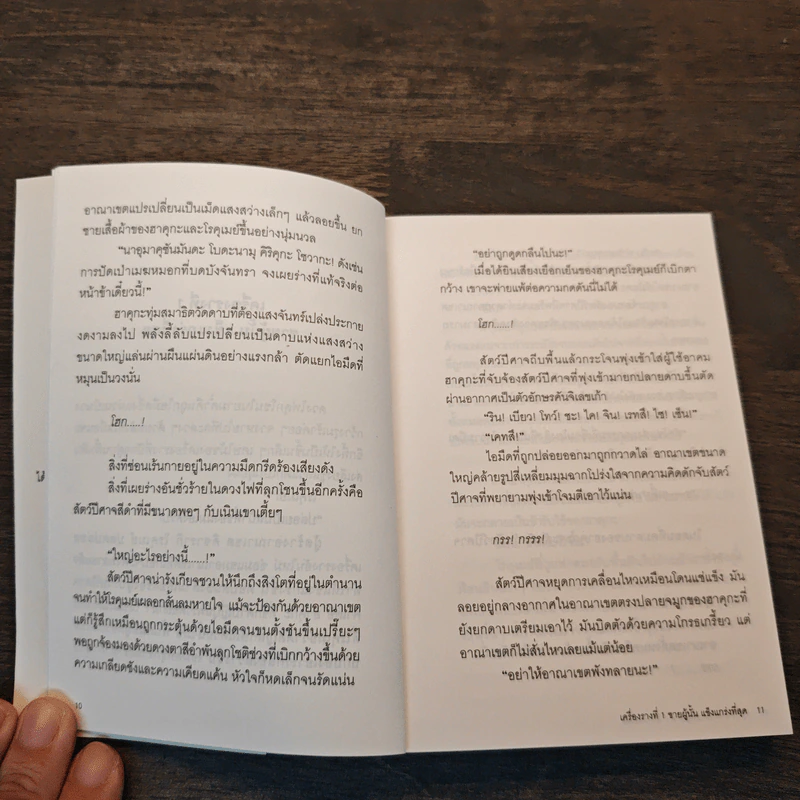 อาณาเขตแปรเปลี่ยนเป็นเม็ดแสงสว่างเล็กๆ แล้วลอยขึ้น ยก
ชายเสื้อผ้าของฮาคุกะและโรคุเมย์ขึ้นอย่างนุ่มนวล
“นาอุมาคุซันมันดะ โบดะนามุ คิริคุกะ โซวากะ! ดังเช่น
การปัดเป่าเมฆหมอกที่บดบังจันทรา จงเผยร่างที่แท้จริงต่อ
หน้าข้าเดี๋ยวนี้!”
ฮาคุกะทุ่มสมาธิตวัดดาบที่ต้องแสงจันทร์เปล่งประกาย
งดงามลงไป พลังลี้ลับแปรเปลี่ยนเป็นดาบแห่งแสงสว่าง
ขนาดใหญ่แล่นผ่านผืนแผ่นดินอย่างแรงกล้า ตัดแยกไอมืดที่
หมุนเป็นวงนั่น
โฮก.....!
สิ่งที่ซ่อนเร้นกายอยู่ในความมืดกรีดร้องเสียงดัง
สิ่งที่เผยร่างอันชั่วร้ายในดวงไฟที่ลุกโชนขึ้นอีกครั้งคือ
สัตว์ปีศาจสีดำที่มีขนาดพอๆ กับเนินเขาเตี้ยๆ
“ใหญ่อะไรอย่างนี้......!”
สัตว์ปีศาจน่ารังเกียจชวนให้นึกถึงสิงโตที่อยู่ในตำนาน
จนทำให้โรคุเมย์เผลอกลั้นลมหายใจ แม้จะป้องกันด้วยอาณาเขต
แต่ก็รู้สึกเหมือนถูกกระตุ้นด้วยไอมืดจนขนตั้งชันขึ้นเปรี๊ยะๆ
พอถูกจ้องมองด้วยดวงตาสีอำพันลุกโชติช่วงที่เบิกกว้างขึ้นด้วย
ความเกลียดชังและความเคียดแค้น หัวใจก็หดเล็กจนรัดแน่น
10
“อย่าถูกดูดกลืนไปนะ!”
เมื่อได้ยินเสียงเยือกเย็นของฮาคุกะโรคุเมย์ก็เบิกตา
กว้าง เขาจะพ่ายแพ้ต่อความกดดันนี้ไม่ได้
โฮก.....!
สัตว์ปีศาจถีบพื้นแล้วกระโจนพุ่งเข้าใส่ผู้ใช้อาคม
ฮาคุกะที่จับจ้องสัตว์ปีศาจที่พุ่งเข้ามายกปลายดาบขึ้นตัด
ผ่านอากาศเป็นตัวอักษรคันจิเลขเก้า
“ริน! เบียว! โทว์! ชะ! ไค! จิน! เรทสึ! ไซ! เซ็น!”
“เคทสึ!”
ไอมืดที่ถูกปล่อยออกมาถูกกวาดไล่ อาณาเขตขนาด
ใหญ่คล้ายรูปสี่เหลี่ยมมุมฉากโปร่งใสจากความคิดดักจับสัตว์
ปีศาจที่พยายามพุ่งเข้าโจมตีเอาไว้แน่น
กรร! กรรร!
สัตว์ปีศาจหยุดการเคลื่อนไหวเหมือนโดนแช่แข็ง มัน
ลอยอยู่กลางอากาศในอาณาเขตตรงปลายจมูกของฮาคุกะที่
ยังยกดาบเตรียมเอาไว้ มันบิดตัวด้วยความโกรธเกรี้ยว แต่
อาณาเขตก็ไม่สั่นไหวเลยแม้แต่น้อย
“อย่าให้อาณาเขตพังทลายนะ!”
เครื่องรางที่ 1 ชายผู้นั้น แข็งแกร่งที่สุด 11